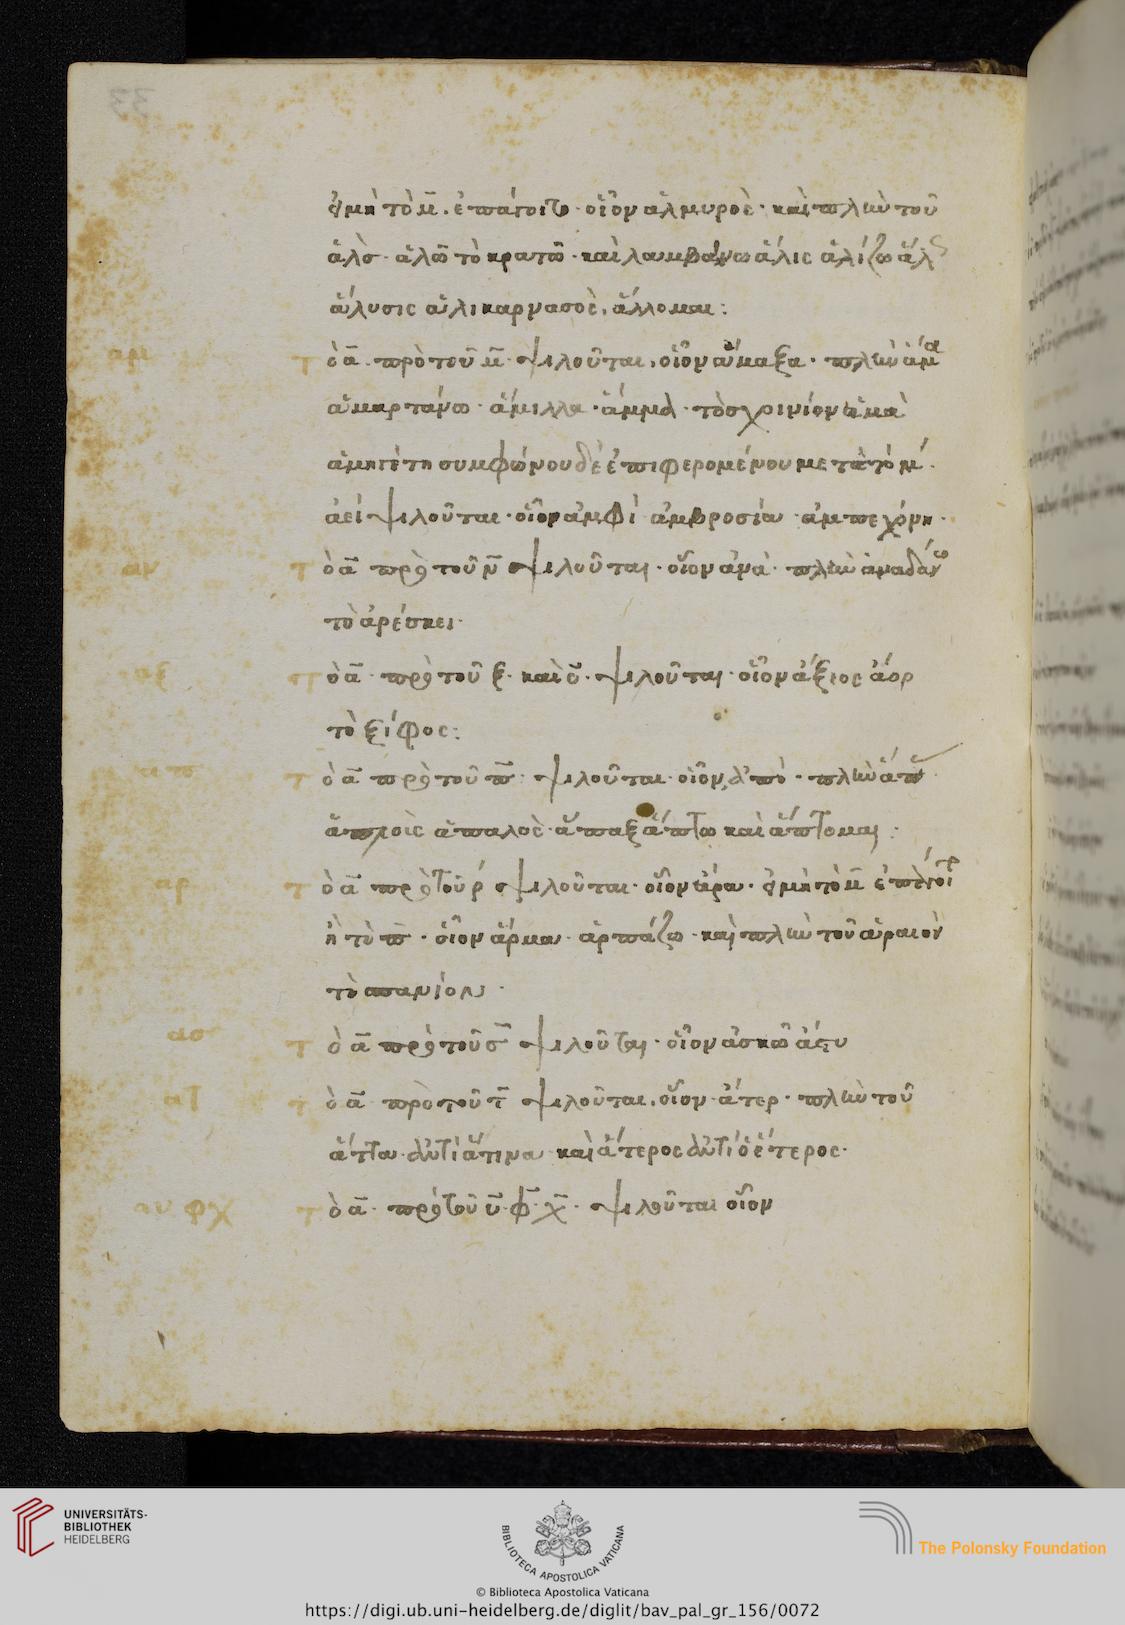 εἰ μὴ τὸ μ̅. ἐπάγοιτο· οἷον ἁλμυρός· καὶ πλὴν τοῦ
ἁλὸς· ἁλῶ τὸ κρατῶ· καὶ λαμβάνω ἅλις ἁλίζω ἅλς
ἅλυσις ἁλικαρνασὸς, ἅλλομαι:
αμ τὸ α̅ πρὸ τοῦ μ̅ ψιλοῦται, οἷον ἄμαξα· πλὴν ἅμα
ἁμαρτάνω· ἅμιλλα· ἅμμα· τὸ σχοινίον
ἁμηγέπη συμφώνου δὲ ἐπιφερομένου μετὰ τὸ μ.
ἀεί ψιλοῦται· οἷον ἀμφὶ ἀμβροσία ἀμπεχόνη·
αν τὸ α̅ πρὸ τοῦ ν̅ ψιλοῦται· οἷον ἀνὰ· πλὴν ἁνδάνω
τὸ ἀρέσκει·
αξ τὸ α̅ πρὸ τοῦ ξ· καὶ ο̅· ψιλοῦται· οἷον ἄξιος ἄορ
τὸ ξίφος:
απ τὸ α̅ πρὸ τοῦ π̅· ψιλοῦται· οἷον ἀπὸ· πλὴν
ἁπλοῖς ἁπαλὸς· ἅπαξ ἅπτω καὶ ἅπτομαι:
αρ τὸ α̅ πρὸ τοῦ ρ ψιλοῦται· οἷον ἄρα· εἰ μὴ τὸ μ̅
ἢ τὸ π̅· οἷον ἅρμα· ἁρπάζω· καὶ πλὴν τοῦ ἁραιὸν
τὸ σπανίον·
ασ τὸ α̅ πρὸ τοῦ σ̅ ψιλοῦται· οἷον ἀσκῶ ἄστυ
ατ τὸ α̅ πρὸ τοῦ τ̅ ψιλοῦται, οἷον ἄτερ· πλὴν τοῦ
ἅττα· ἀντὶ ἅτινα καὶ ἅτερος ἀντὶ ὁ ἕτερος·
αυ φχ τὸ α̅ πρὸ τοῦ υ̅· φ̅· χ̅· ψιλοῦται οἷον
UNIVERSITÄTS-
BIBLIOTHEK
HEIDELBERG
BIBLIOTECA APOSTOLICA VATICANA
The Polonsky Foundation
© Biblioteca Apostolica Vaticana
https://digi.ub.uni-heidelberg.de/diglit/bav_pal_gr_156/0072